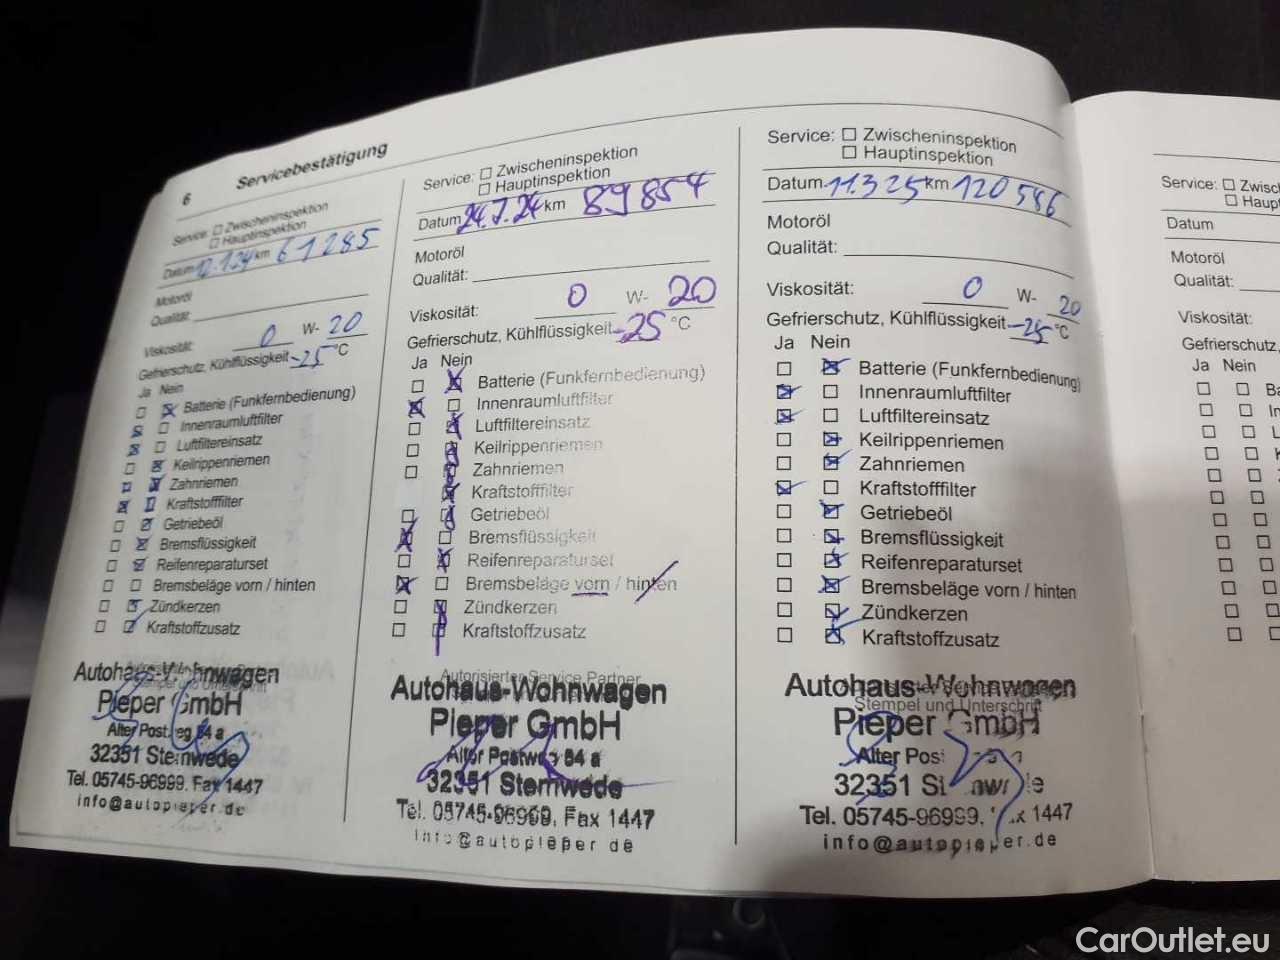 6 Servicebestätigung
Service: ☐ Zwischeninspektion
☐ Hauptinspektion
Datum 12.1.24 km 61285
Motoröl
Qualität:
Viskosität: 0 W- 20
Gefrierschutz, Kühlflüssigkeit -25 °C
Ja Nein
Batterie (Funkfernbedienung)
Innenraumluftfilter
Luftfiltereinsatz
Keilrippenriemen
Zahnriemen
Kraftstofffilter
Getriebeöl
Bremsflüssigkeit
Reifenreparaturset
Bremsbeläge vorn / hinten
Zündkerzen
Kraftstoffzusatz
Autohaus-Wohnwagen
Pieper GmbH
Alter Postweg 84 a
32351 Stemwede
Tel. 05745-96999. Fax 1447
info@autopieper.de
Service: ☐ Zwischeninspektion
☐ Hauptinspektion
Datum 24.7.24 km 89854
Motoröl
Qualität:
Viskosität: 0 W- 20
Gefrierschutz, Kühlflüssigkeit -25 °C
Ja Nein
Batterie (Funkfernbedienung)
Innenraumluftfilter
Luftfiltereinsatz
Keilrippenriemen
Zahnriemen
Kraftstofffilter
Getriebeöl
Bremsflüssigkeit
Reifenreparaturset
Bremsbeläge vorn / hinten
Zündkerzen
Kraftstoffzusatz
Autorisierter Service Partner
Autohaus-Wohnwagen
Pieper GmbH
Alter Postweg 84 a
32351 Stemwede
Tel. 05745-96969, Fax 1447
info@autopieper de
Service: ☐ Zwischeninspektion
☐ Hauptinspektion
Datum 11.3.25 km 120586
Motoröl
Qualität:
Viskosität: 0 W- 20
Gefrierschutz, Kühlflüssigkeit -25 °C
Ja Nein
Batterie (Funkfernbedienung)
Innenraumluftfilter
Luftfiltereinsatz
Keilrippenriemen
Zahnriemen
Kraftstofffilter
Getriebeöl
Bremsflüssigkeit
Reifenreparaturset
Bremsbeläge vorn / hinten
Zündkerzen
Kraftstoffzusatz
Autohaus-Wohnwagen
Stempel und Unterschrift
Pieper GmbH
Alter Pos
32351 St mwede
Tel. 05745-96999. Fax 1447
info@autopieper.de
Service: ☐ Zwisc
☐ Haup
Datum
Motoröl
Qualität:
Viskosität:
Gefrierschutz,
Ja Nein
Ba
In
L
K
CarOutlet.eu